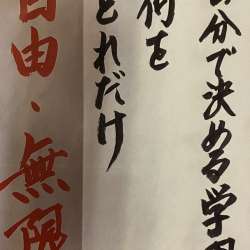 自分で決める学
何を
どれだけ
自由・無限